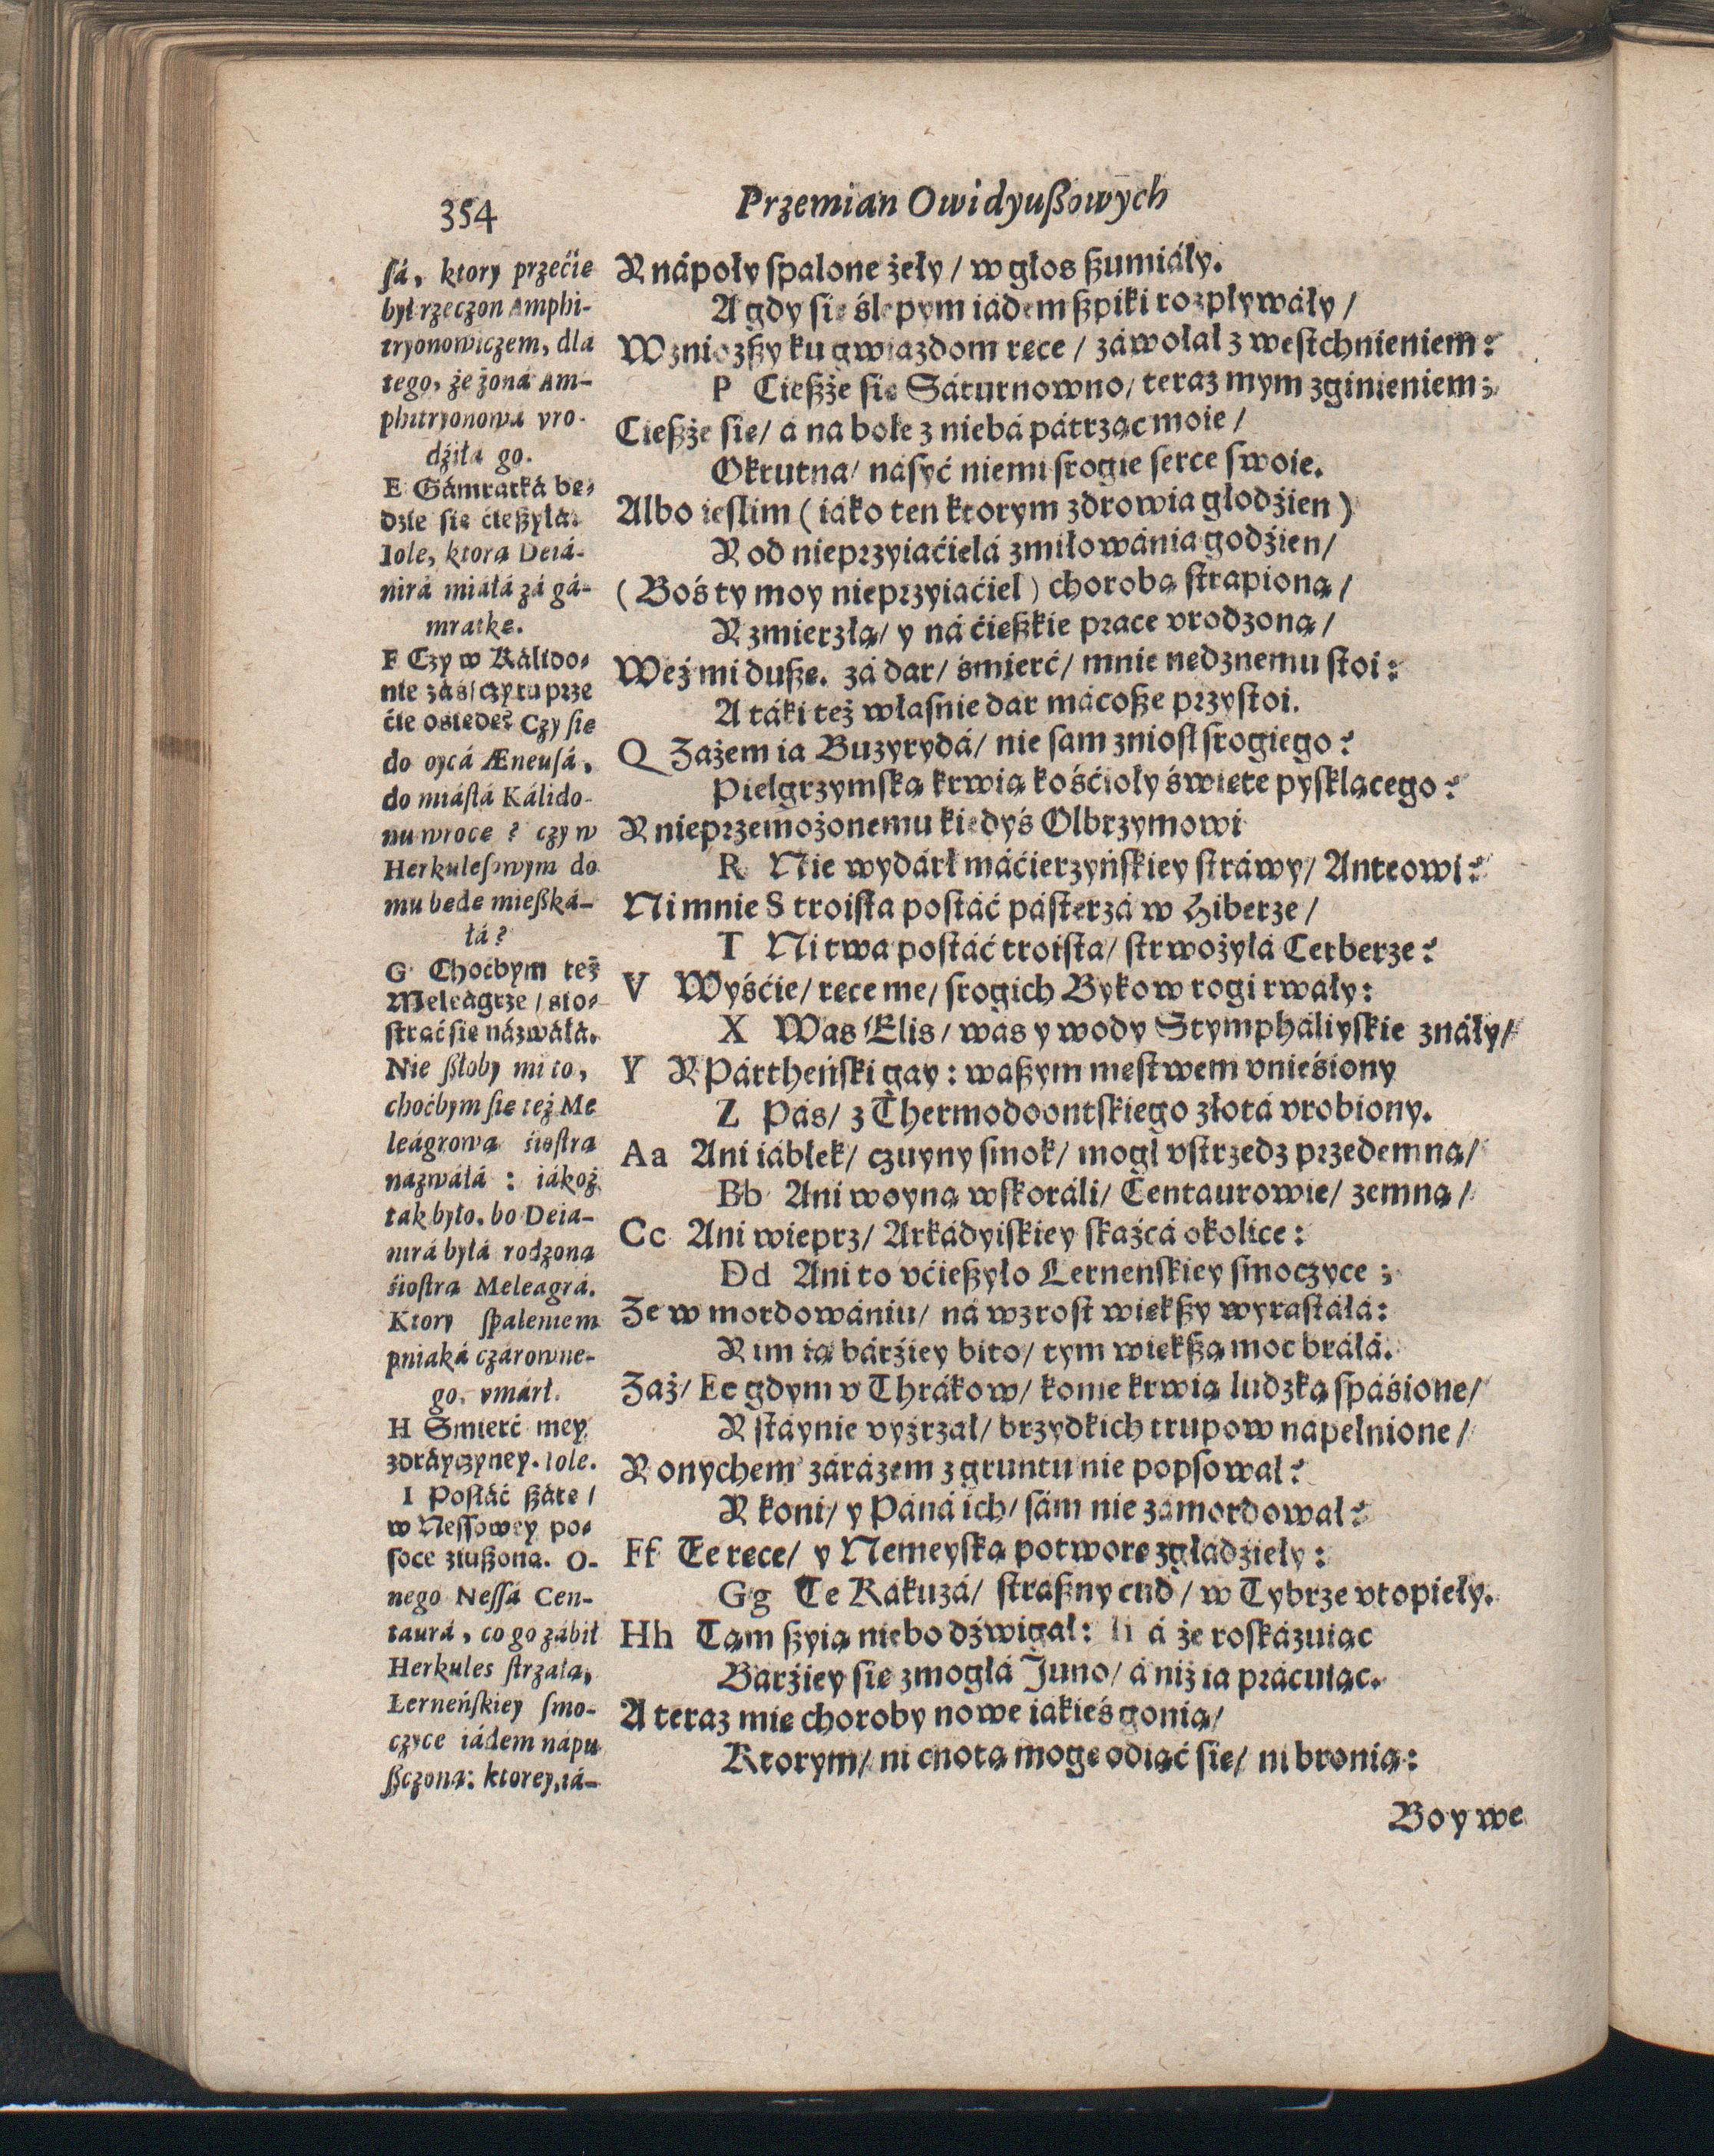 354
Przemian Owidyußowych
ſá, ktory przećie
był rzeczon Amphi-
tryonowiczem, dla
tego, że żoná Am-
phitryonowá vro-
dźiłá go.
E Gámratká bę-
dzie się ćießyłá.
Iole, ktorą Deiá-
nirá miáłá zá gá-
mratkę.
F Czy w Kálido-
nie záś/ czy tu prze
ćie osiędę? Czy się
do oycá Æneuſá,
do miáſtá Kálido-
nu wrocę? czy w
Herkuleſowym do
mu będę mießká-
łá?
G Choćbym też
Meleagrze / sio-
ſtrać się názwáłá.
Nie ßłoby mi to,
choćbym ſię też Me
leágrową śioſtrą
názwáłá : iákoż
tak było, bo Deia-
nirá byłá rodzoną
śioſtrą Meleagrá.
Ktory ſpaleniem
pniaká czárowne-
go, vmárł.
H Smierć mey
zdráyczyney. Iole.
I Poſłáć ßátę /
w Neſſowey po-
ſoce ziußoną. O-
nego Neſſá Cen-
taurá, co go zábił
Herkules ſtrzałą,
Lerneńſkiey ſmo-
czyce iádem nápu
ßczoną: ktorey, iá-
Y nápoły ſpalone żeły / w głos ßumiáły.
A gdy się ślepym iádem ßpiki rozpływáły /
Wzniozßy ku gwiazdom ręce / záwołał z weſtchnieniem:
P Cießże się Sáturnowno/ teraz mym zginieniem;
Cießże się/ á na bole z niebá pátrząc moie /
Okrutna/ násyć niemi srogie ſerce ſwoie.
Albo ieſlim (iáko ten ktorym zdrowia głodźien)
Y od nieprzyiaćielá zmiłowánia godźien/
(Boś ty moy nieprzyiaćiel) chorobą ſtrapioną /
Y zmierzłą/ y ná ćießkie prace vrodzoną /
Weź mi dußę. zá dar/ śmierć/ mnie nędznemu ſtoi:
A táki też własnie dar mácoße przyſtoi.
Q Zażem ia Buzyrydá/ nie ſam zniosł srogiego?
Pielgrzymską krwią kośćioły święte pysklącego?
Y nieprzemożonemu kiedyś Olbrzymowi
R Nie wydárł máćierzyńſkiey ſtráwy/ Anteowi?
Ni mnie S troista poſtáć páſterzá w Hiberze /
T Ni twa poſtáć troiſta/ ſtrwożyłá Cerberze?
V Wyśćie/ ręce me/ srogich Bykow rogi rwały:
X Was Elis/ was y wody Stympháliyskie znáły/
Y Y Pártheński gay: waßym męſtwem vnieśiony
Z Pás/ z Thermodoontſkiego złotá vrobiony.
Aa Ani iábłek/ czuyny smok/ mogł vſtrzedz przedemną/
Bb Ani woyną wskoráli/ Centaurowie/ zemną /
Cc Ani wieprz/ Arkádyiſkiey ſkaźcá okolice:
Dd Ani to vćießyło Lernenſkiey smoczyce ;
Że w mordowániu/ ná wzroſt więkßy wyraſtáłá:
Y im ią bárźiey bito/ tym więkßą moc bráłá.
Zaż/ Ee gdym v Thrákow/ konie krwią ludzką ſpáśione/
Y ſtáynie vyźrzał/ brzydkich trupow nápełnione /
Y onychem zárázem z gruntu nie popſował?
Y koni/ y Páná ich/ ſám nie zámordował?
Ff Te ręce/ y Nemeyſką potworę zgłádźieły:
Gg Te Kákuzá/ ſtraßny cud / w Tybrze vtopieły.
Hh Tąm ßyią niebo dźwigał: Ii á że roſkázuiąc
Bárźiey się zmogłá Juno/ á niż ia prácuiąc.
A teraz mię choroby nowe iakieś gonią/
Ktorym/ ni cnotą mogę odiąć się/ ni bronią:
Bo y we